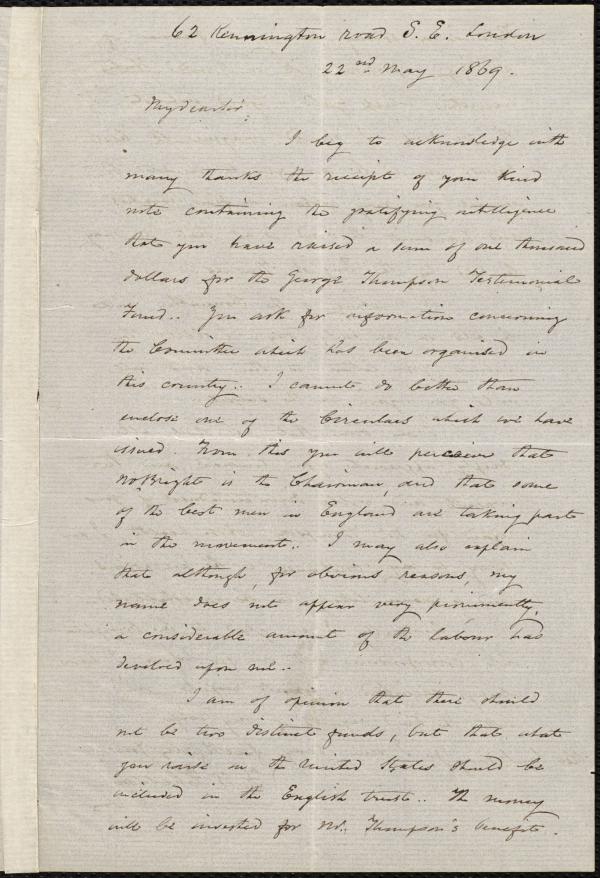 62 Kennington road S. E. London
22nd May 1869.
My dear Sir,
I beg to acknowledge with
many thanks the receipt of your kind
note containing the gratifying intelligence
that you have raised a sum of one thousand
dollars for the George Thompson Testimonial
Fund.. You ask for information concerning
the Committee which has been organised in
this country.. I cannot do better than
enclose one of the Circulars which we have
issued. From this you will perceive that
Mr. Bright is the Chairman, and that some
of the best men in England are taking part
in the movement.. I may also explain
that although, for obvious reasons, my
name does not appear very prominently,
a considerable amount of the labour has
devolved upon me..
I am of opinion that there should
not be two distinct funds, but that what
you raise in the United States should be
included in the English trust.. The money
will be invested for Mr. Thompson's benefit.